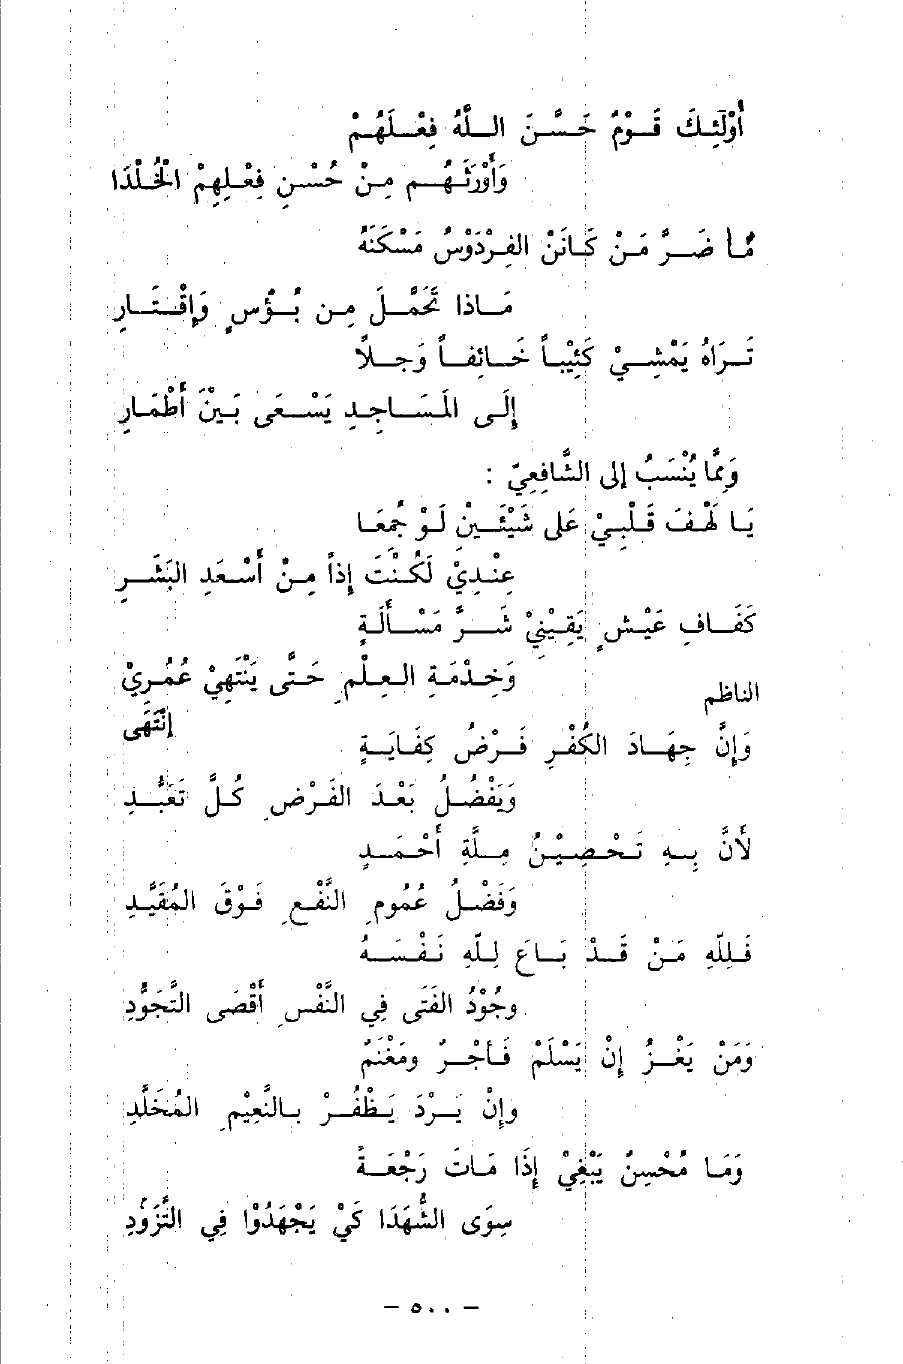 أُوْلَئِكَ قَوْمٌ حَسَّنَ اللَّهُ فِعْلَهُمْ
وَأَوْرَثَهُم مِنْ حُسْنِ فِعْلِهِمْ الْخُلْدَا
مَا ضَرَّ مَنْ كَانَتْ الفِرْدَوْسُ مَسْكَنَهُ
مَاذَا تَحَمَّلَ مِن بُؤْسٍ وَإِقْتَارِ
تَرَاهُ يَمْشِيْ كَئِيْباً خَائِفاً وَجِلاً
إِلَى المَسَاجِدِ يَسْعَى بَيْنَ أَطْمَارِ
وَمِمَّا يُنْسَبُ إِلى الشَّافِعِيّ :
يَا لَهْفَ قَلْبِيْ عَلى شَيْئَيْنِ لَوْ جُمِعَا
عِنْدِيْ لَكُنْتُ إِذاً مِنْ أَسْعَدِ البَشَرِ
كَفَافِ عَيْشٍ يَقِيْنِيْ شَرَّ مَسْأَلَةٍ
وَخِدْمَةِ العِلْمِ حَتَّى يَنْتَهِيْ عُمُرِيْ
إِنْتَهَى
الناظم
وَإِنَّ جِهَادَ الكُفْرِ فَرْضُ كِفَايَةٍ
وَيَفْضُلُ بَعْدَ الفَرْضِ كُلَّ تَعَبُّدِ
لأَنَّ بِهِ تَحْصِيْنُ مِلَّةِ أَحْمَدٍ
وَفَضْلُ عُمُومِ النَّفْعِ فَوْقَ المُقَيَّدِ
فَلِلّهِ مَنْ قَدْ بَاعَ لِلّهِ نَفْسَهُ
وجُوْدُ الفَتَى فِي النَّفْسِ أَقْصَى التَّجَوُّدِ
وَمَنْ يَغْزُ إِنْ يَسْلَمْ فَأَجْرٌ ومَغْنَمٌ
وإِنْ يَرْدَ يَظْفَرْ بِالنَّعِيْمِ المُخَلَّدِ
وَمَا مُحْسِنٌ يَبْغِيْ إِذَا مَاتَ رَجْعَةً
سِوَى الشُّهَدَا كَيْ يَجْهَدُوْا فِي التَّزَوُّدِ
— ٥٠٠ —